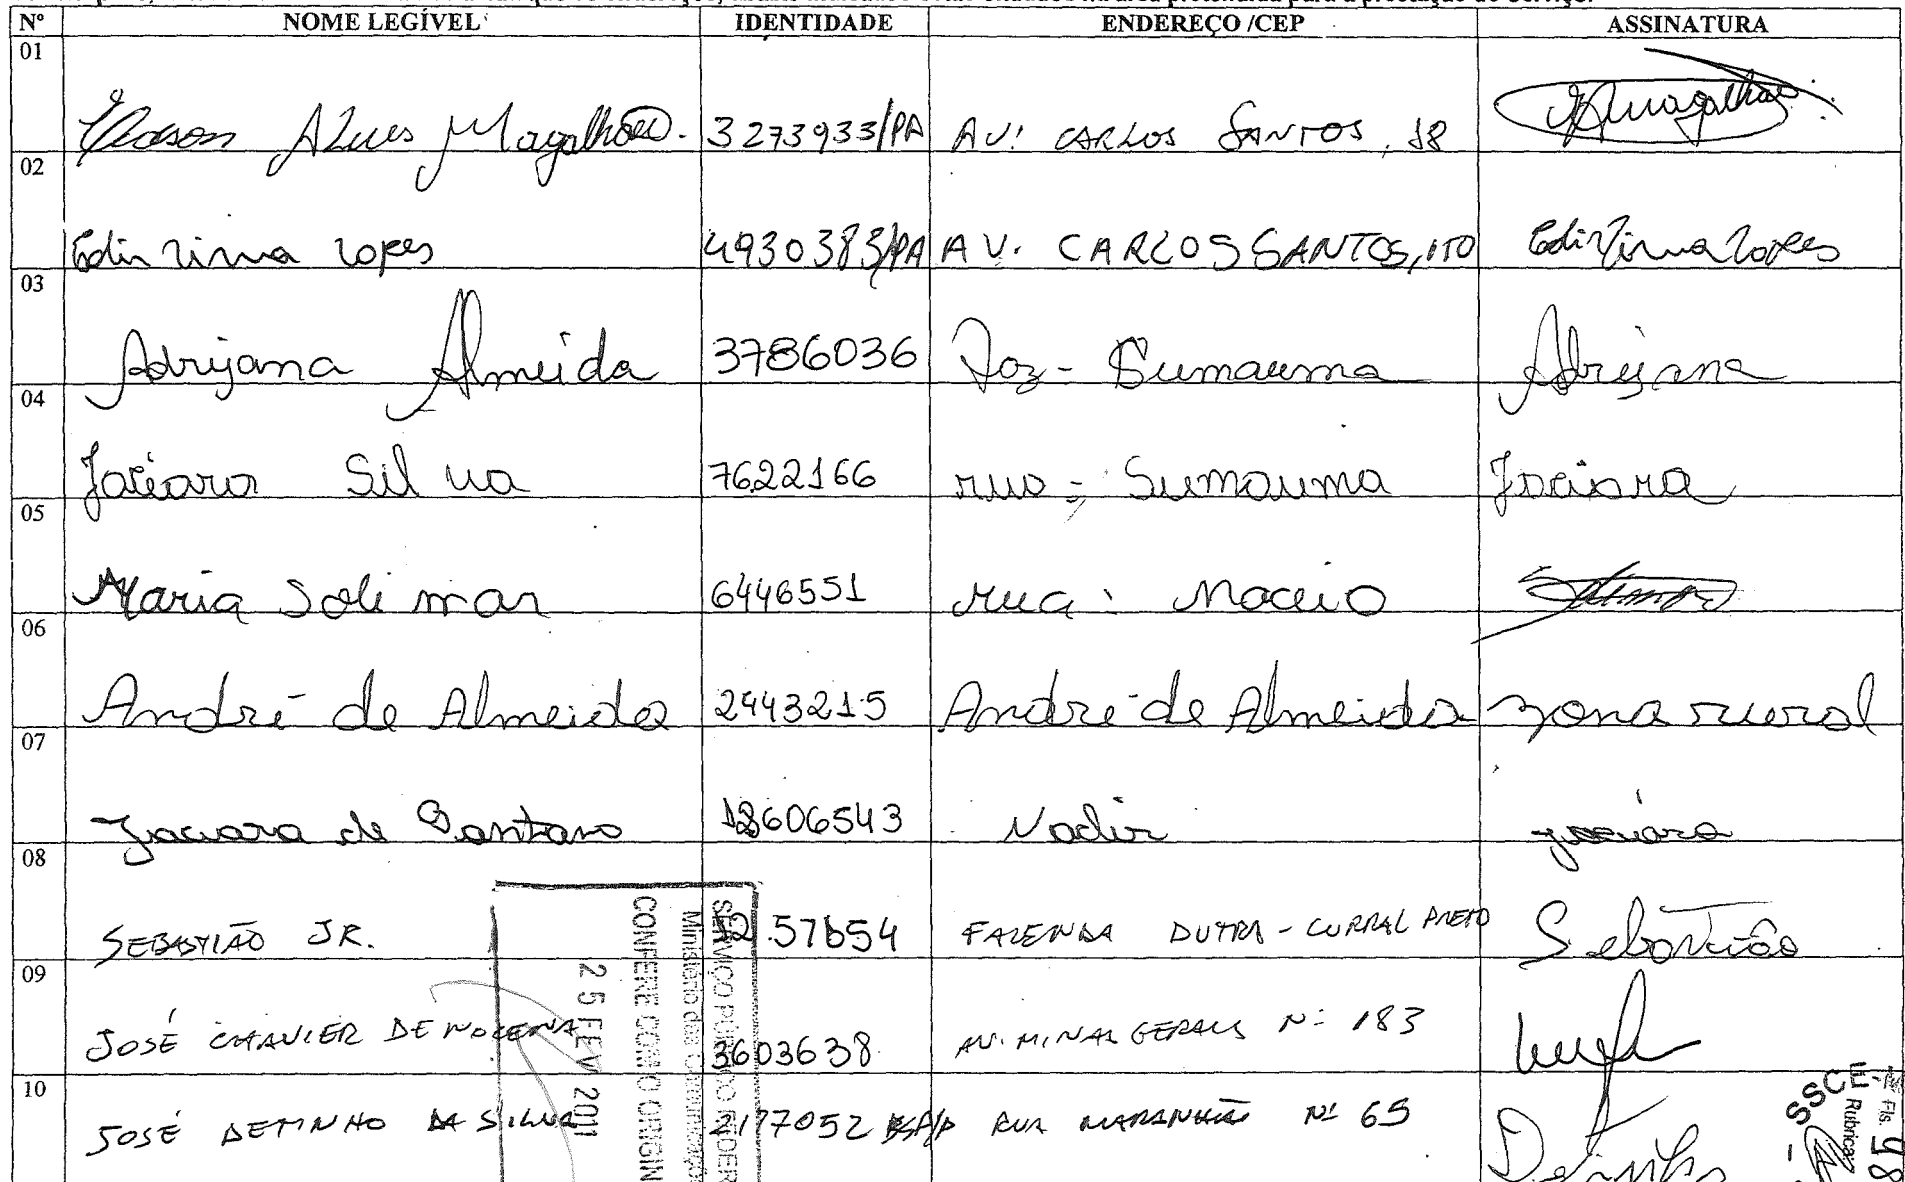 Nº NOME LEGÍVEL IDENTIDADE ENDEREÇO /CEP ASSINATURA
01 Alves Magalhães. 3273933/PA AV: CARLOS SANTOS, 18 Magalhães
02 Edin Lima Lopes 4930383/PA AV. CARLOS SANTOS, 170 Edin Lima Lopes
03 Adrijana Almeida 3786036 Sumauma Adrijana
04 Jaciara Silva 7622166 rua - Sumauma Jaciara
05 Maria Soli mar 6446551 rua: Maceio
06 André de Almeida 2443215 André de Almeida zona rural
07 Jaciara de 12606543 Nadir jaciara
08 SEBASTIÃO JR. 12.57654 FAZENDA DUTRA - CURRAL PRETO Sebastião
09 JOSÉ CHAVIER DE 3603638 AV. MINAS GERAIS Nº 183
10 JOSÉ DETINHO DA SILVA 2177052 RUA MARANHÃO Nº 65 Detinho
SERVIÇO PÚBLICO FEDER
Ministério das Comunicaçõ
CONFERE COM O ORIGIN
25 FEV 2011
Fls. 98
Rubrica
SSCE